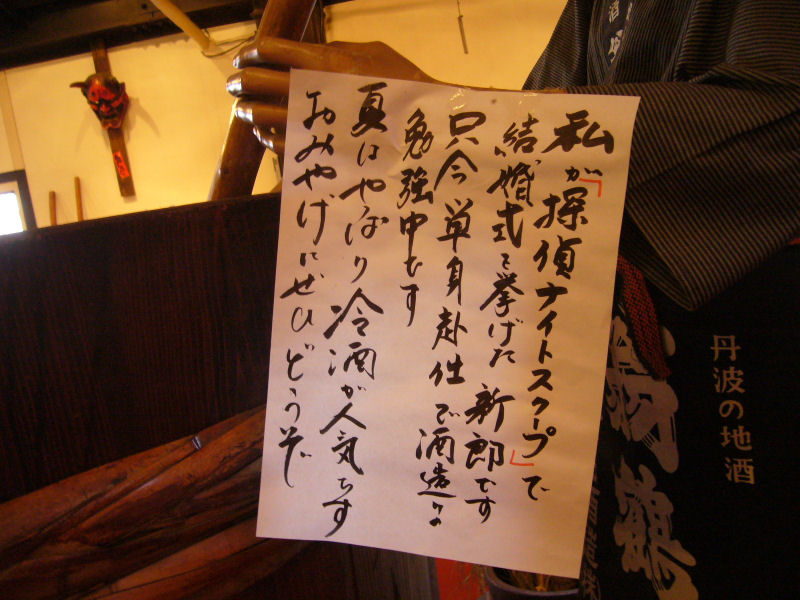 私が「探偵ナイトスクープ」で
結婚式を挙げた新郎です
只今単身赴任で酒造りの
勉強中です
夏はやはり冷酒が人気です
おみやげにぜひどうぞ
丹波の地酒
鶴
酒